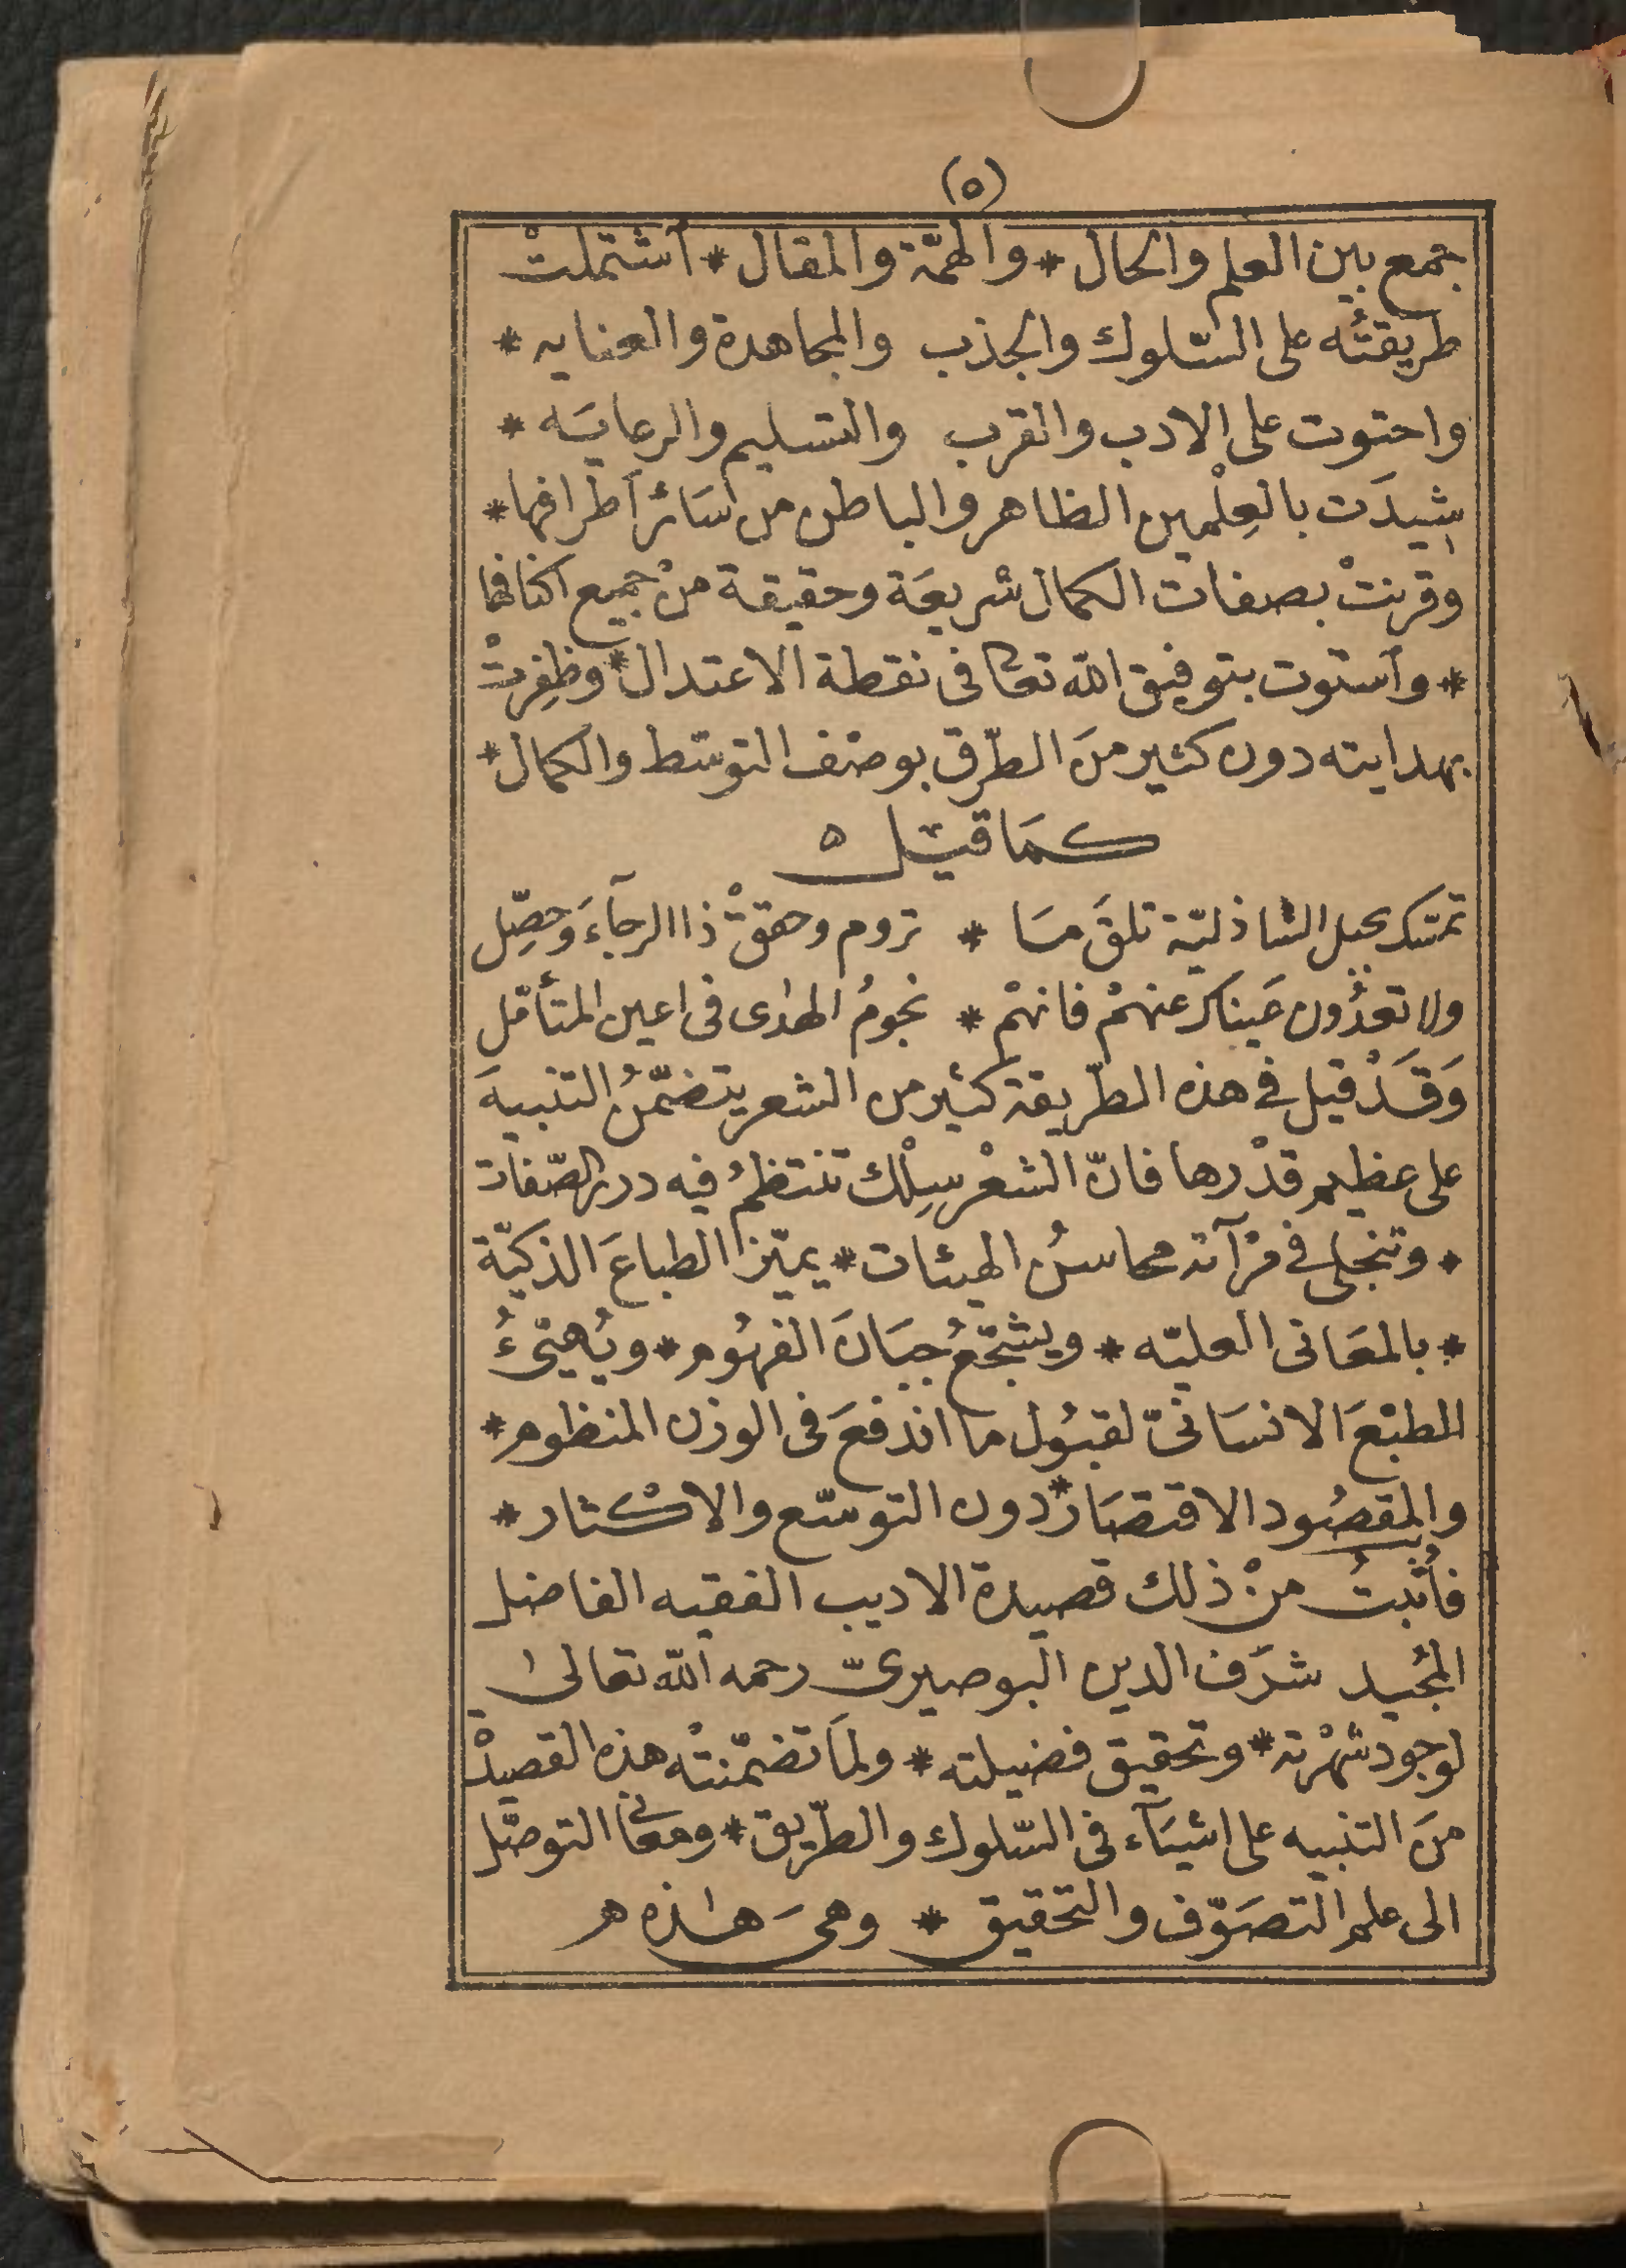 (٥)
جمع بين العلم والحال * والهمّة والمقال * ٱشتملتْ
طريقتُه على السّلوك والجذب والمجاهدة والعنايه *
واحتوت على الادب والقرب والتسليم والرعايَه *
شِيدَت بالعِلْمين الظاهر والباطن من سَائر أطرافها *
وقرنتْ بصفات الكمال شريعَة وحقيقة منْ جميع اكنافها
* وٱستوت بتوفيق الله تعالى فى نقطة الاعتدال * وظفِرتْ
بهدايته دون كثير منَ الطّرق بوصْف التوسّط والكمال *
كمَا قيْل ٥
تمسّك بحبل الشاذليّة تلقَ مَا * تروم وحققْ ذا الرجآءَ وحصِّل
ولا تعدُون عَيناك عنهمْ فانهمْ * نجومُ الهدٰى فى اعين المتأمّل
وَقَدْ قيل فى هذه الطّريقة كثير من الشعر يتضمّنُ التنبيهَ
على عظيم قدْرها فانّ الشعْر سِلْك تنتظمُ فيه درر الصّفات
* وتنجلى فى مرْآته محاسنُ الهيئات * يميّز الطباعَ الذكيّة
* بالمعَانى العليّه * ويشجّعُ جبَانَ الفهُوم * ويُهيّئُ
الطبْعَ الانسَانىّ لقبُول ما اندفعَ فى الوزن المنظوم *
والمقصُود الاقتصَار * دون التوسّع والاكْثار *
فأُثبتُ منْ ذلك قصيدة الاديب الفقيه الفاضل
المُجيد شرَف الدين البوصيرىّ رحمه الله تعالىٰ
لوجود شهْرته * وتحقيق فضيلته * ولمَا تضمّنتْه هذه القصيدْ
منَ التنبيه على اشيَآء فى السّلوك والطّريق * ومعانى التوصّل
الى علم التصَوّف والتحقيق * وهىَ هٰذه ه